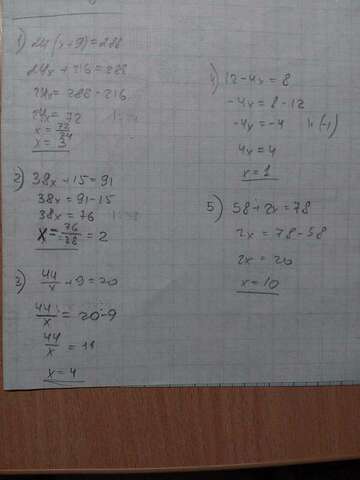 1) 24(x+9)=288
24x+216=288
24x=288-216
24x=72
x=72/24
x=3
2) 38x+15=91
38x=91-15
38x=76
x=76/38=2
3) 44/x+9=20
44/x=20-9
44/x=11
x=4
4) 12-4x=8
-4x=8-12
-4x=-4 |·(-1)
4x=4
x=1
5) 58+2x=78
2x=78-58
2x=20
x=10